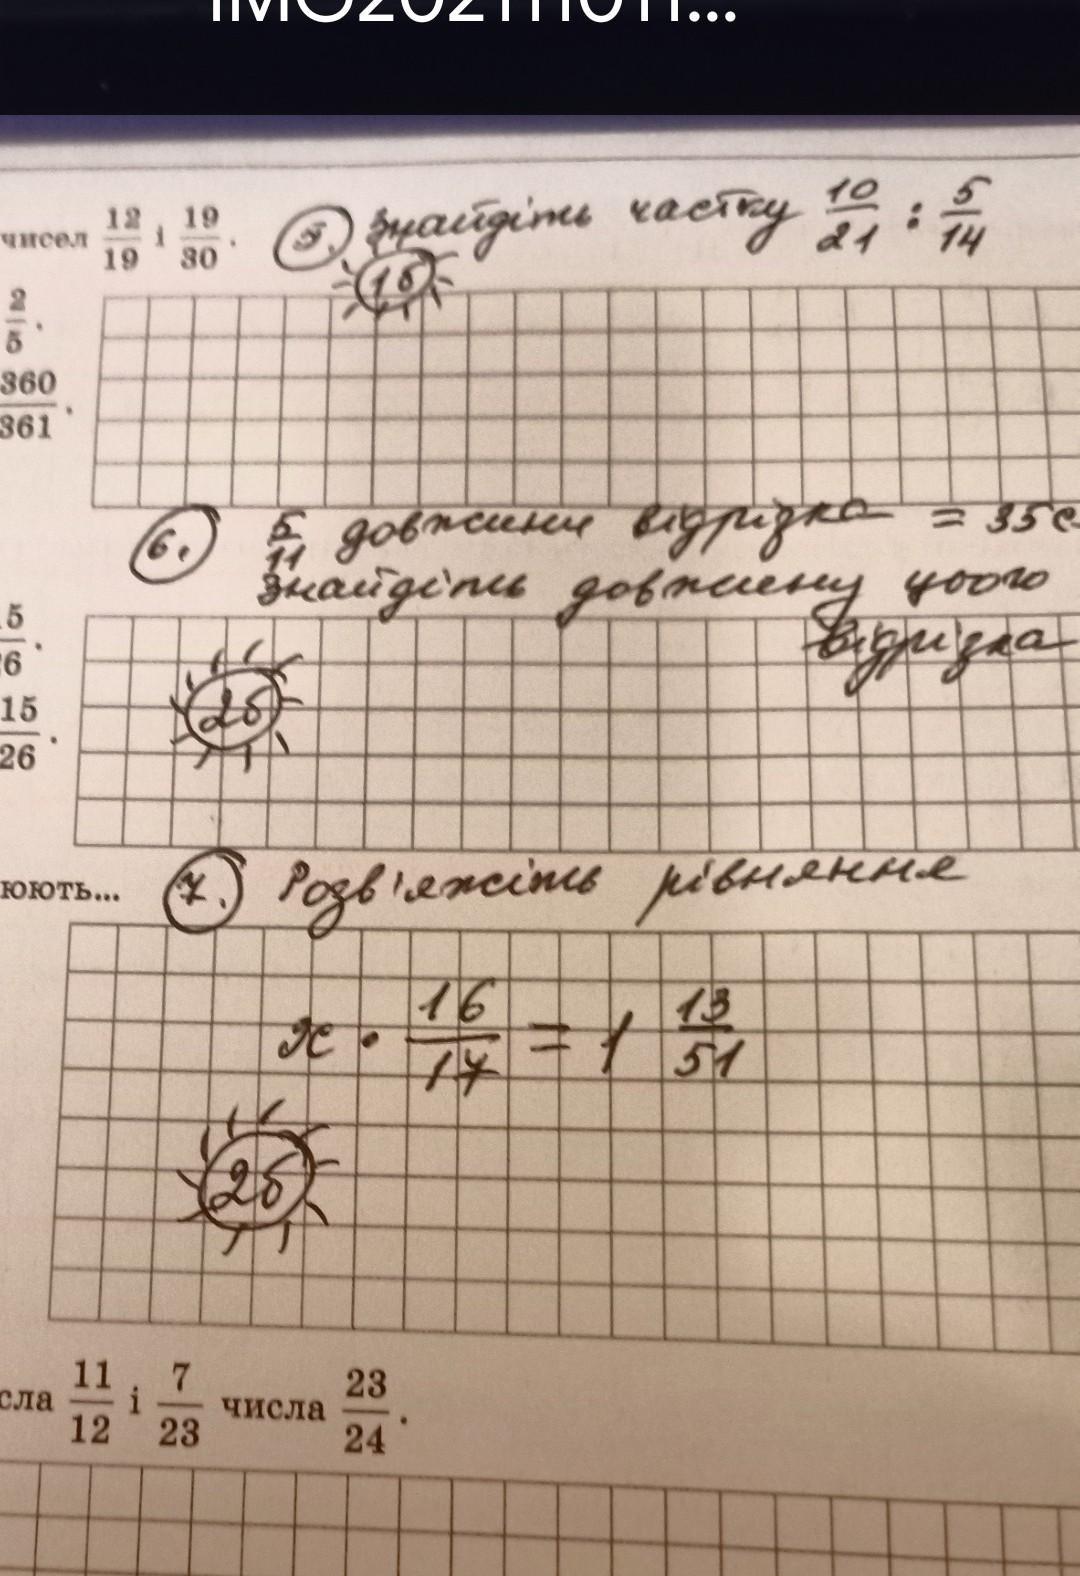 чисел 12/19 і 19/30.
5. Знайдіть частку 10/21 : 5/14
1б
2/5.
360/361.
6. 5/11 довжини відрізка = 35с
Знайдіть довжину цього
відрізка
2б
15/26.
юють...
7. Розв'яжіть рівняння
x · 16/17 = 1 13/51
2б
сла 11/12 і 7/23 числа 23/24.